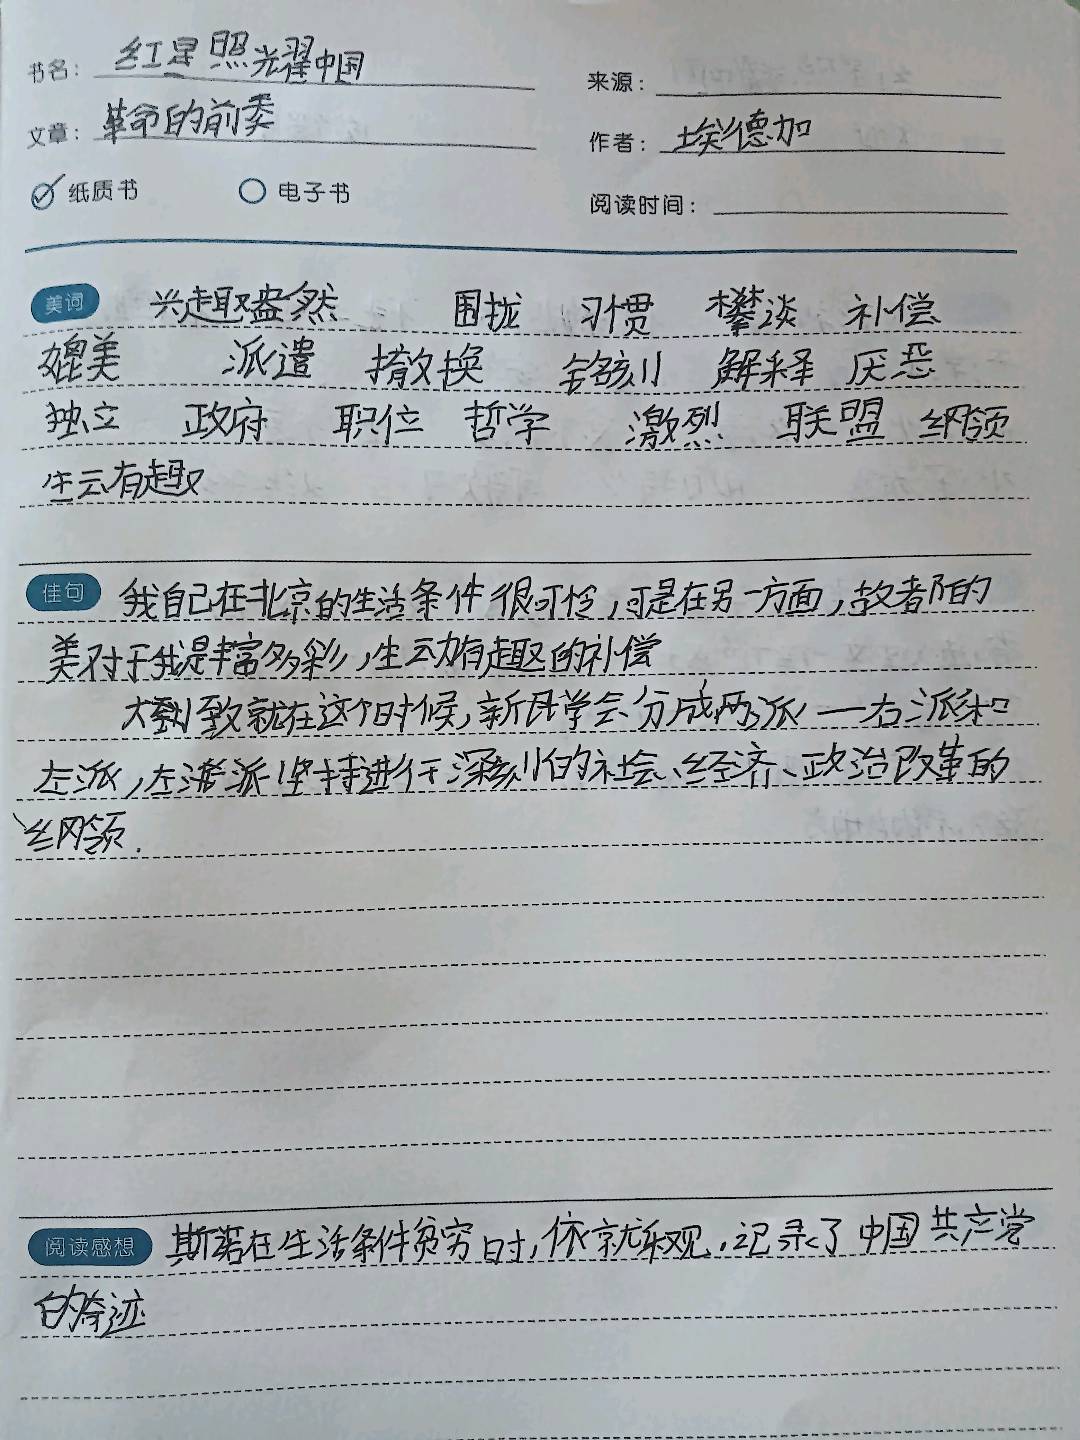 书名： 红星照光耀中国 来源：
文章： 革命的前委 作者： 埃德加
纸质书 电子书 阅读时间：
美词 兴趣盎然 围拢 习惯 攀谈 补偿
媲美 派遣 撤换 铭刻 解释 厌恶
独立 政府 职位 哲学 激烈 联盟 纲领
生云有趣
佳句 我自己在北京的生活条件很可怜，可是在另一方面，故者阝的
美对于我是丰富多彩，生动有趣的补偿
大致就在这个时候，新民学会分成两派——右派和
左派，左派坚持进行深刻的社会、经济、政治改革的
纲领.
阅读感想 斯诺在生活条件贫穷时，依就乐观，记录了中国共产党
的奇迹